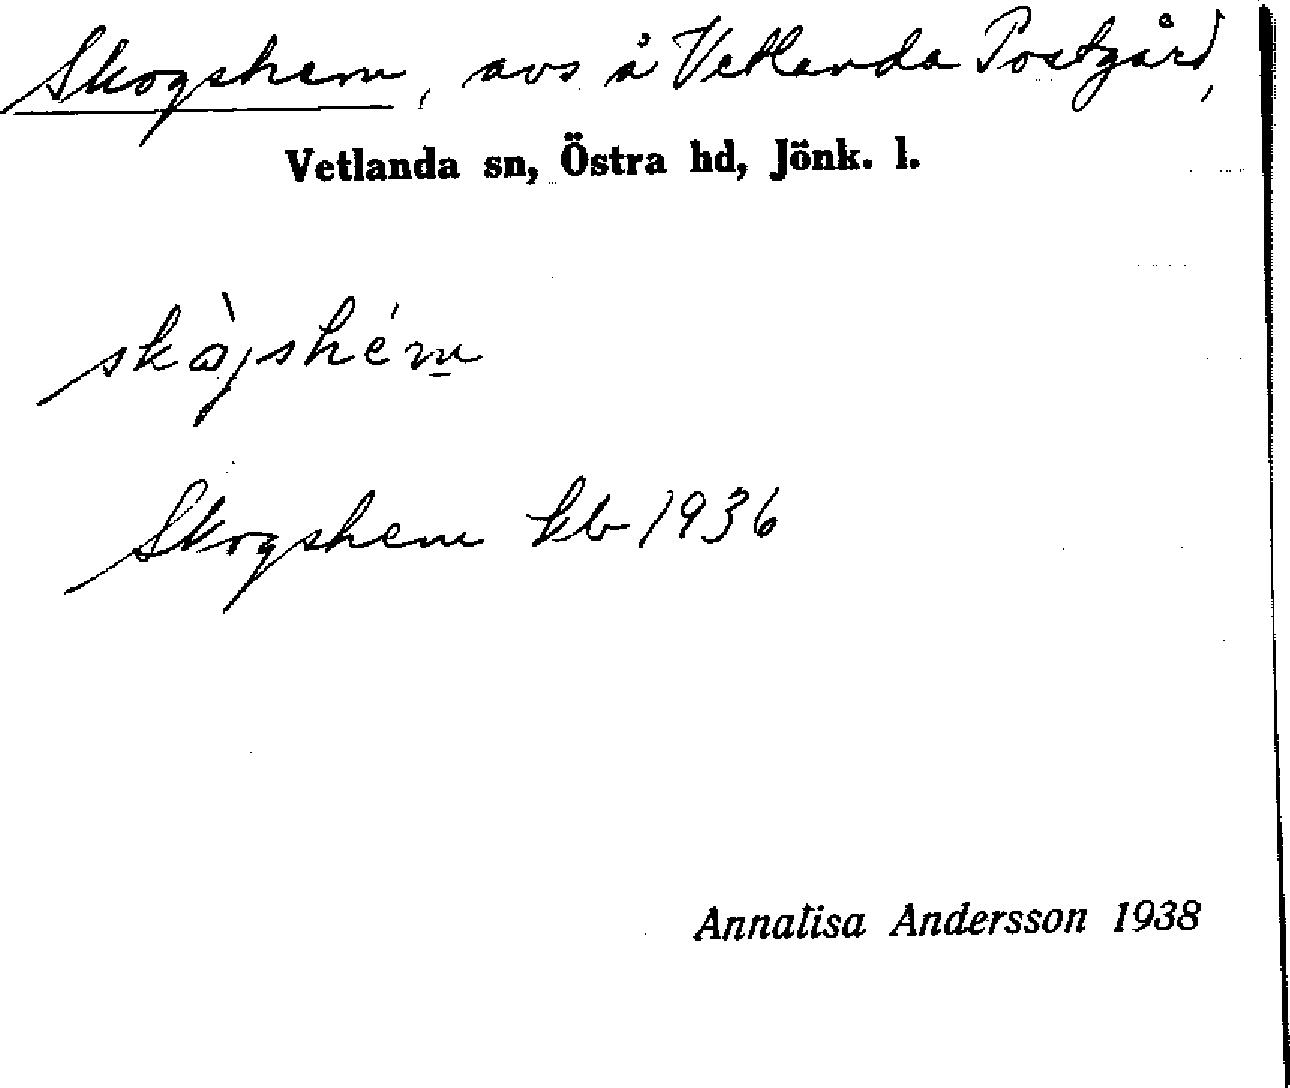 Skogshem, avs å Vetlanda Postgård,
Vetlanda sn, Östra hd, Jönk. l.
skògshém
Skogshem kb 1936
Annalisa Andersson 1938